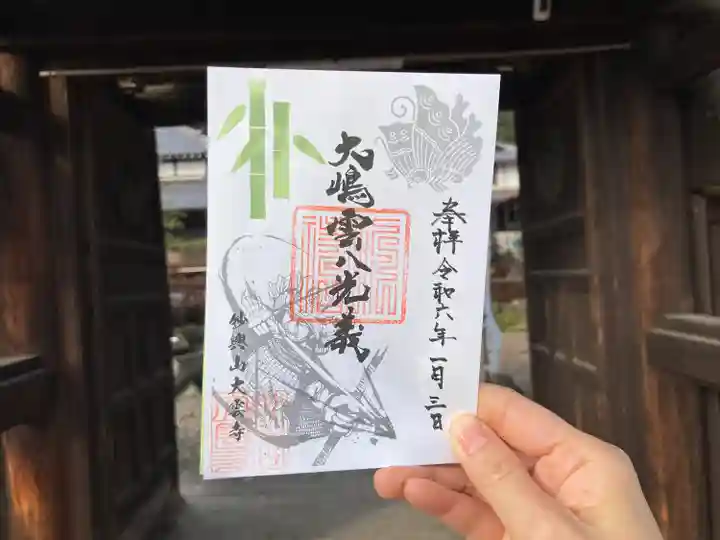 奉拝 令和六年 一月三日
大嶋雲八光義
妙興山大雲寺